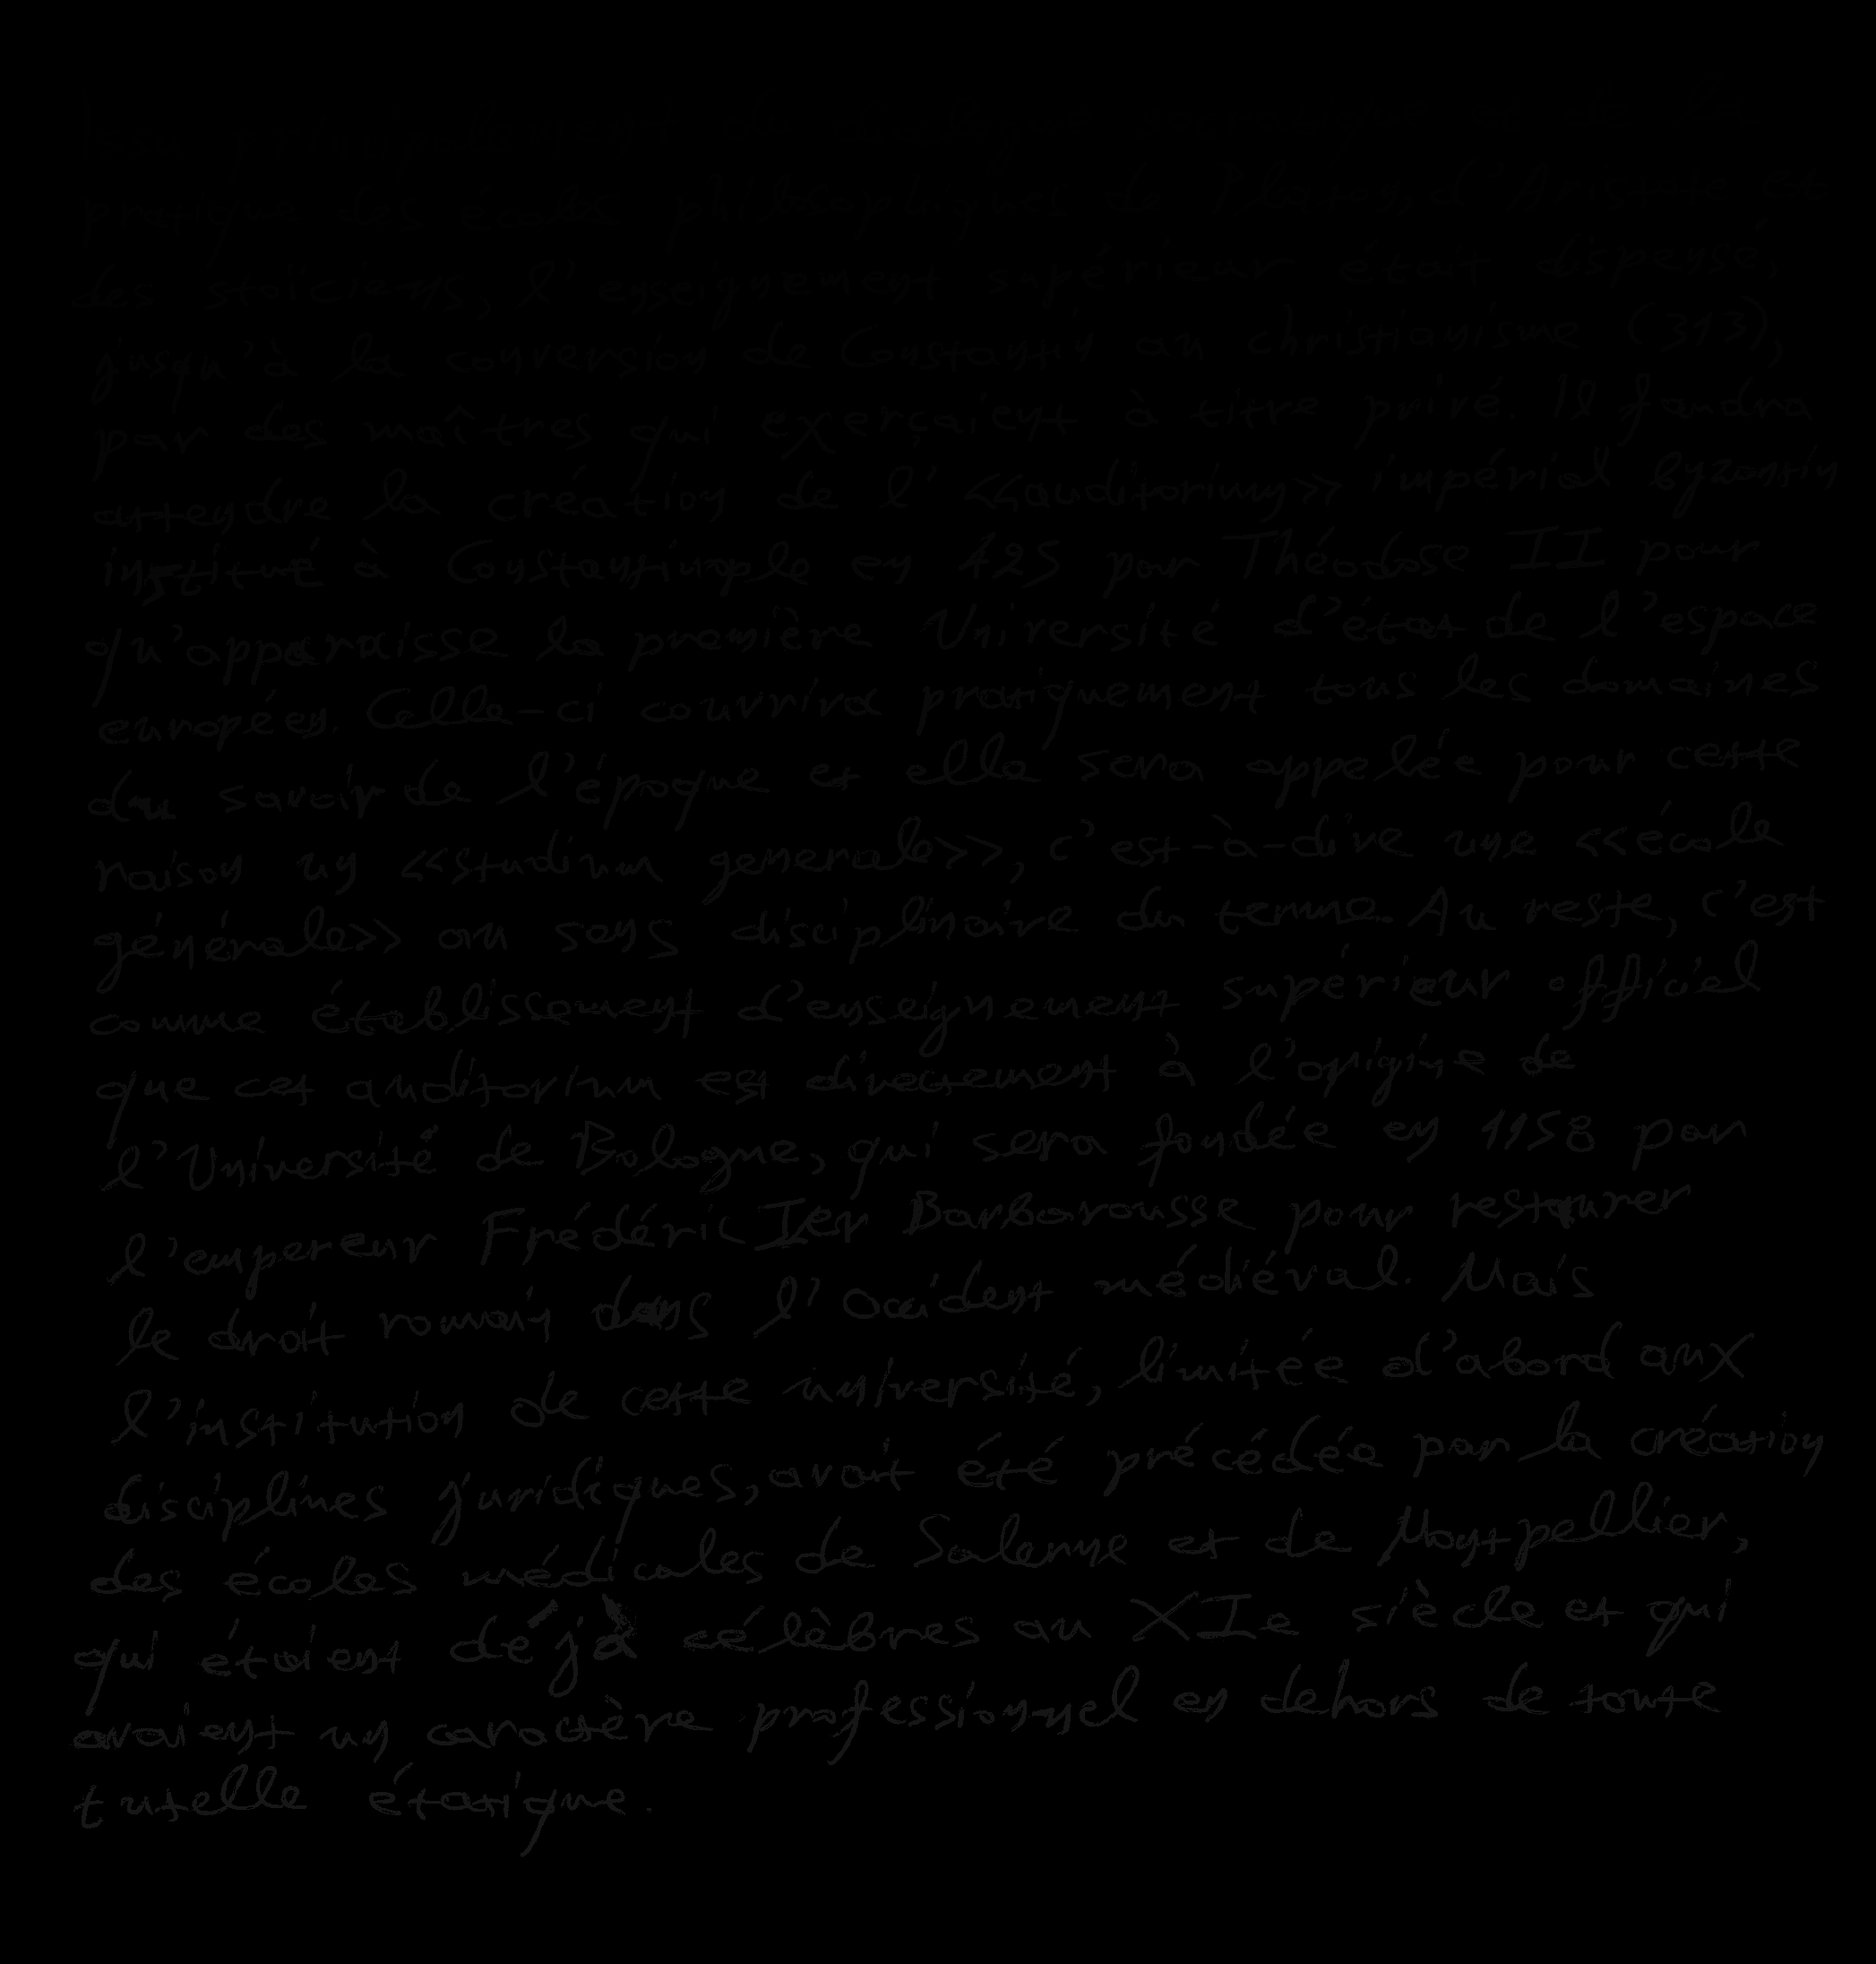 pratique des écoles philosophiques de Platon, d'Aristote et
des stoïciens, l'enseignement supérieur était dispensé,
jusqu'à la conversion de Constantin au christianisme (313),
par des maîtres qui exerçaient à titre privé. Il faudra
attendre la création de l'<<auditorium>> impérial byzantin
institué à Constantinople en 425 par Théodose II pour
qu'apparaisse la première Université d'état de l'espace
européen. Celle-ci couvrira pratiquement tous les domaines
du savoir de l'époque et elle sera appelée pour cette
raison un <<studium generale>>, c'est-à-dire une <<école
générale>> au sens disciplinaire du terme. Au reste, c'est
comme établissement d'enseignement supérieur officiel
que cet auditorium est directement à l'origine de
l'Université de Bologne, qui sera fondée en 1158 par
l'empereur Frédéric Ier Barbarousse pour restaurer
le droit romain dans l'Occident médiéval. Mais
l'institution de cette université, limitée d'abord aux
disciplines juridiques, avait été précédée par la création
des écoles médicales de Salerne et de Montpellier,
qui étaient déjà célèbres au XIe siècle et qui
avaient un caractère professionnel en dehors de toute
tutelle étatique.